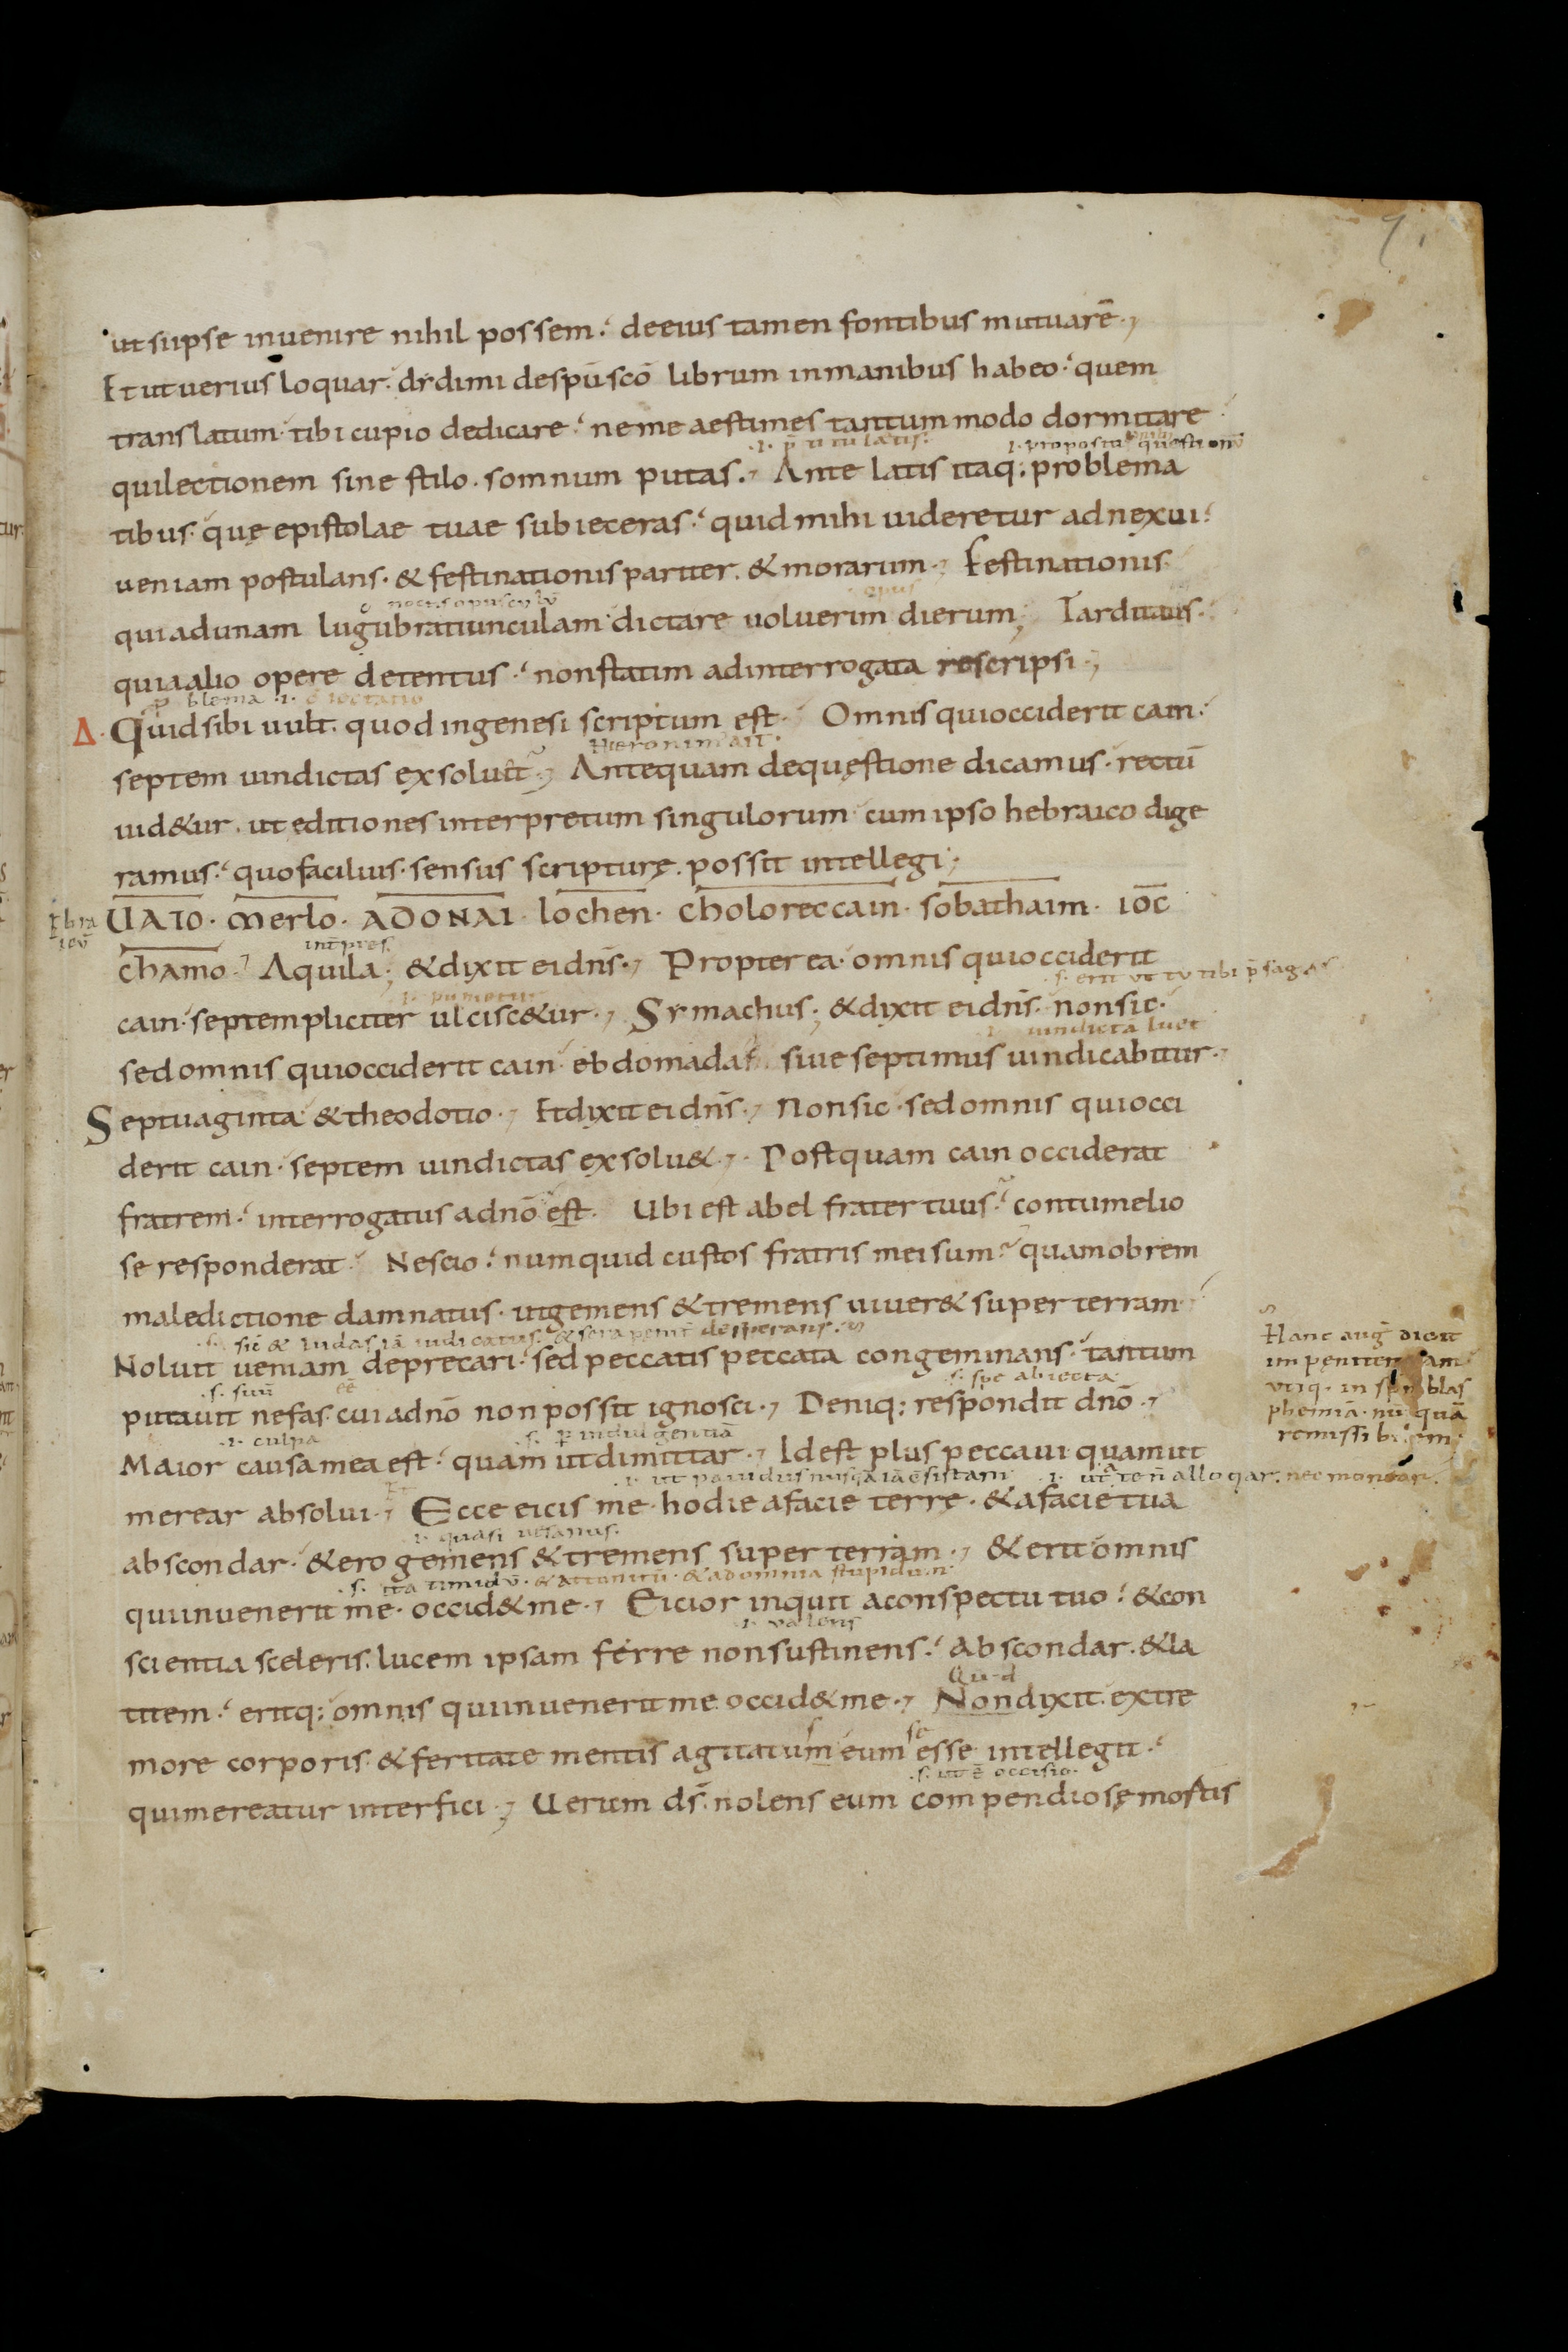 ut siipse inuenire nihil possem. deeius tamen fontibus mutuarē.
Et ut uerius loquar. dẏdimi despū scō librum inmanibus habeo. quem
translatum tibi cupio dedicare. neme aestimes tantummodo dormitare
.i. p̄titulatis. .i. propositis questionū
quilectionem sine stilo. somnum putas. Ante latis itaq; problema
tibus quę epistolae tuae subieceras. quid mihi uideretur adnexui.
ueniam postulans. & festinationis pariter. & morarum. Festinationis
noctis opusculū opus
quiadunam lugubratiunculam dictare uoluerim dierum; Tarditatis.
quiaalio opere detentus. nonstatim adinterrogata rescripsi.
p blema .i.
Δ. Quid sibi uult. quod ingenesi scriptum est. Omnis quiocciderit cain.
Hieronim' ait.
septem uindictas exsoluet. Antequam dequęstione dicamus. rectū
uid&ur. ut editiones interpretum singulorum cum ipso hebraico dige
ramus. quo facilius. sensus scripturę. possit intellegi.
Ebra
icū
UAIO. merlo. ADONAI. lochen. choloreccain. sobathaim. ioc
intp̄res.
chamo. Aquila; & dixit ei dn̄s. Propter ea. omnis quiocciderit
s. erit ut tu tibi p̄sagas
cain. septempliciter ulcisc&ur. Symachus; & dixit ei dn̄s. non sic.
uindicta luet
sed omnis quiocciderit cain ebdomadas siue septimus uindicabitur.
Septuaginta & theodotio. Et dixit ei dn̄s. Non sic. sed omnis quiocci
derit cain. septem uindictas exsolu&. Postquam cain occiderat
fratrem. interrogatus adnō est. Ubi est abel frater tuus. contumelio
se responderat. Nescio. numquid custos fratris mei sum. quamobrem
maledictione damnatus. ut gemens & tremens uiuer& super terram
s. sic̄ & iudas iā iudicatus. & sera penit̄ desperans.
Noluit ueniam deprecari. sed peccatis peccata congeminans. tantum
s. suū eē s. spe abiecta
putauit nefas. cui adnō non possit ignosci. Deniq; respondit dnō.
.i. culpa s. p indulgentiā
Maior causa mea est. quam ut dimittar. Idest plus peccaui quam ut
.i. ut pauidus nusquā iā c̄sistam .i. ut a te n̄ alloqar. nec
merear absolui. Ecce eicis me hodie afacie terrę. & afacie tua
.i. quasi uesanus.
abscondar. & ero gemens & tremens super terram. & erit omnis
s. ita timidū. & attonitū. & ad omnia stupidum
quiinuenerit me. occid& me. Eicior inquit aconspectu tuo. & con
.i. ualens
scientia sceleris. lucem ipsam ferre non sustinens. Abscondar. & la
Quod
titem. eritq; omnis quiinuenerit me occid& me. Non dixit. extre
s se
more corporis & feritate mentis agitatum eum esse intellegit.
s. ut ē occisio.
quimereatur interfici. Uerum ds̄ nolens eum compendiosę mortis
Hanc aug̅ dicit
impeniten am
utiq. in sp̄m blas
phemiā. nūquā
remissibilem